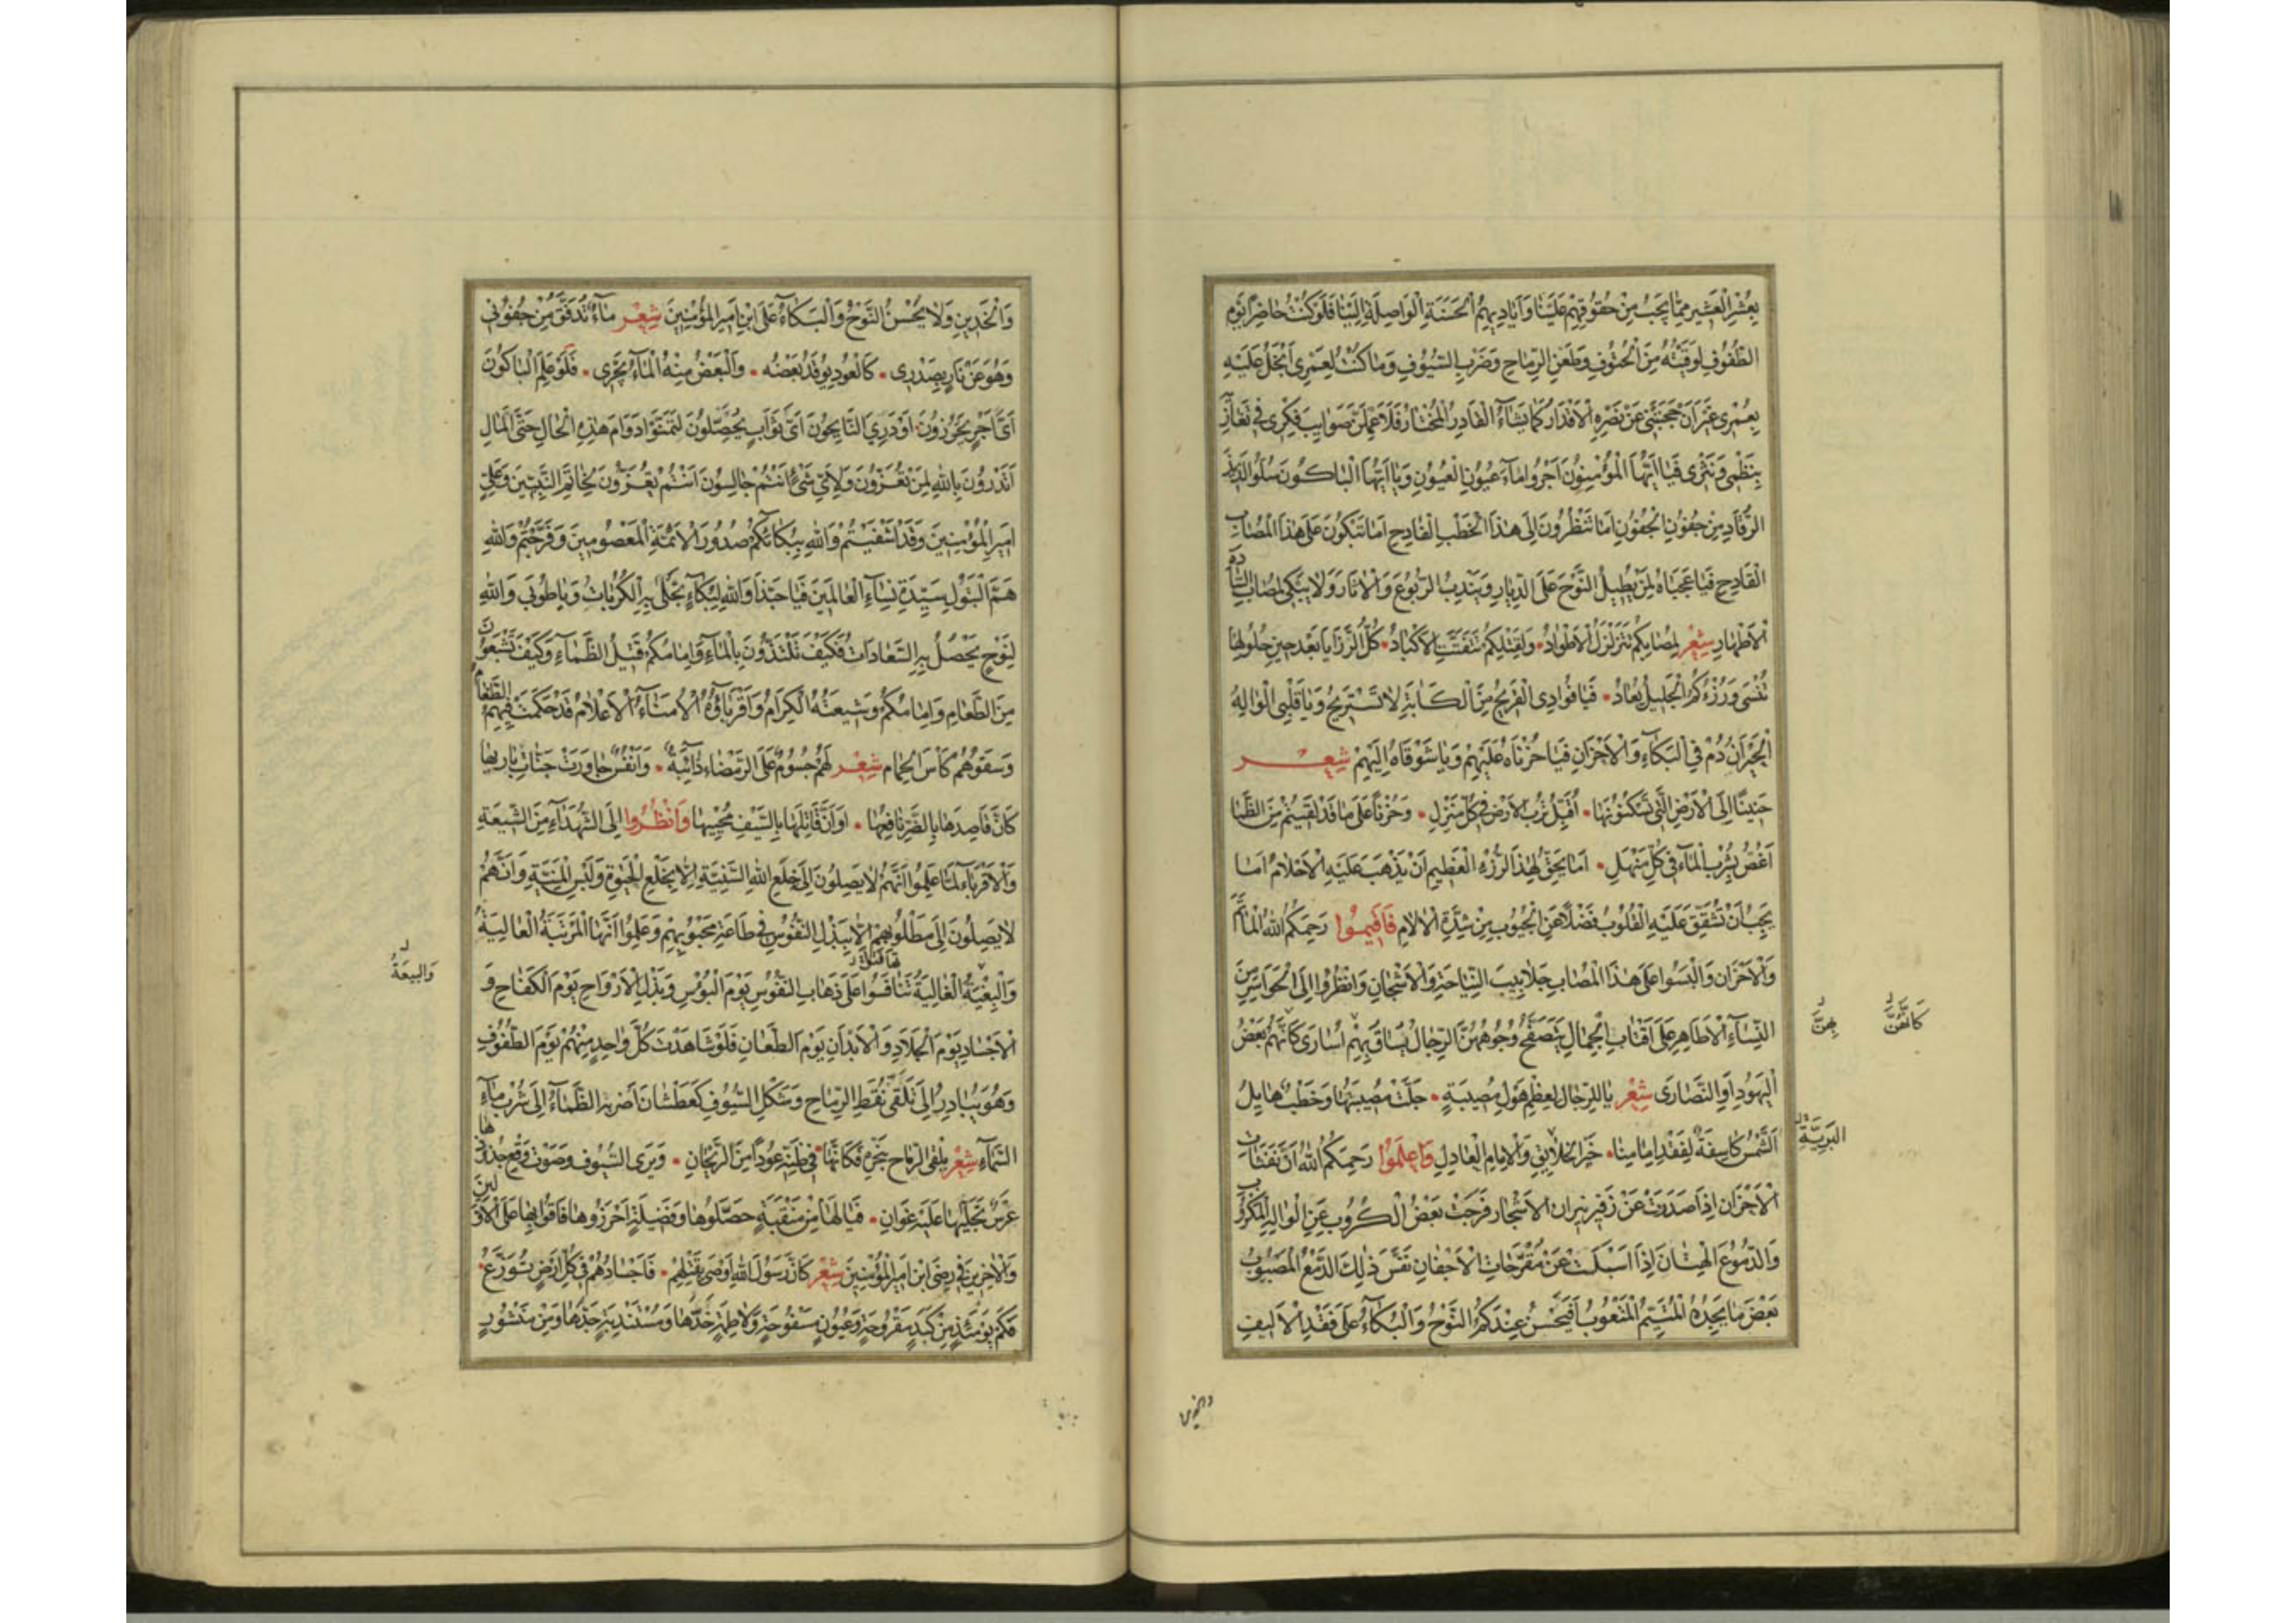 بِعُشْرِ الْعَشِيرِ مِمَّا يَجِبُ مِنْ حُقُوقِهِمْ عَلَيْنَا وَأَيَادِيهِمُ الْحَسَنَةِ الْوَاصِلَةِ إِلَيْنَا فَلَوْ كُنْتُ حَاضِرًا يَوْمَ
الطُّفُوفِ لَوَقَيْتُهُ مِنَ الْحُتُوفِ وَطَعْنِ الرِّمَاحِ وَضَرْبِ السُّيُوفِ وَمَا كُنْتُ لَعَمْرِي أَبْخَلُ عَلَيْهِ
بِعُمْرِي غَيْرَ أَنْ حَجَبَتْنِي عَنْ نَصْرِهِ الْأَقْدَارُ كَمَا يَشَاءُ الْقَادِرُ الْمُخْتَارُ فَلَأُعْمِلَنَّ صَوَايِبَ فِكْرِي فِي
بِنَظْمِي وَنَثْرِي فَيَا أَيُّهَا الْمُؤْمِنُونَ أَجْرُوا مَاءَ عُيُونِ الْعُيُونِ وَيَا أَيُّهَا الْبَاكُونَ سُلُّوا لَذِيذَ
الرُّقَادِ مِنْ جُفُونِ الْجُفُونِ أَمَا تَنْظُرُونَ إِلَى هٰذَا الْخَطْبِ الْفَادِحِ أَمَا تَبْكُونَ عَلَى هٰذَا الْمُصَابِ
الْقَادِحِ فَيَا عَجَبَاهُ لِمَنْ يُطِيلُ النَّوْحَ عَلَى الدِّيَارِ وَيَنْدِبُ الرُّبُوعَ وَالْآثَارَ وَلَا يَبْكِي لِمُصَابِ السَّادَةِ
الْأَطْهَارِ شِعْر لِمُصَابِكُمْ تَتَزَلْزَلُ الْأَطْوَادُ وَلِقَتْلِكُمْ تَتَفَتَّتُ الْأَكْبَادُ كُلُّ الرَّزَايَا بَعْدَ حِينِ حُلُولِهَا
تُنْسَى وَرُزْءُكُمُ الْجَلِيلُ يُعَادُ فَيَا فُؤَادِي الْقَرِيحُ مِنَ الْكَآبَةِ لَا تَسْتَرِيحُ وَيَا قَلْبِي الْوَالِهُ
الْحَيْرَانُ دُمْ فِي الْبُكَاءِ وَالْأَحْزَانِ فَيَا حُزْنَاهُ عَلَيْهِمْ وَيَا شَوْقَاهُ إِلَيْهِمْ شِعْر
حَنِينًا إِلَى الْأَرْضِ الَّتِي تَسْكُنُونَهَا أُقَبِّلُ تُرْبَ الْأَرْضِ فِي كُلِّ مَنْزِلِ وَحُزْنًا عَلَى مَا قَدْ لَقِيتُمْ مِنَ الظَّمَا
أَغُصُّ بِشُرْبِ الْمَاءِ فِي كُلِّ مَنْهَلِ أَمَا يَحِقُّ لِهٰذَا الرُّزْءِ الْعَظِيمِ أَنْ يَذْهَبَ عَلَيْهِ الْأَحْلَامُ أَمَا
يَجِبُ أَنْ تُشَقَّقَ عَلَيْهِ الْقُلُوبُ فَضْلًا عَنِ الْجُيُوبِ مِنْ شِدَّةِ الْآلَامِ فَأَقِيمُوا رَحِمَكُمُ اللّٰهُ الْمَآتِمَ
وَالْأَحْزَانَ وَالْبَسُوا عَلَى هٰذَا الْمُصَابِ جَلَابِيبَ النِّيَاحَةِ وَالْأَشْجَانِ وَانْظُرُوا إِلَى الْحَوَاسِرِ مِنَ
النِّسَاءِ الْأَطَاهِرِ عَلَى أَقْتَابِ الْجِمَالِ يَتَصَفَّحُ وُجُوهَهُنَّ الرِّجَالُ يُسَاقُ بِهِمْ أُسَارَى كَأَنَّهُمْ بَعْضُ
بِهِنَّ
كَأَنَّهُنَّ
الْيَهُودِ أَوِ النَّصَارَى شِعْر يَا لَلرِّجَالِ لِعُظْمِ هَوْلِ مُصِيبَةٍ جَلَّتْ مُصِيبَتُهَا وَخَطْبٌ هَايِلُ
الشَّمْسُ كَاسِفَةٌ لِفَقْدِ إِمَامِنَا خَيْرِ الْخَلَايِقِ وَالْإِمَامِ الْعَادِلِ وَاعْلَمُوا رَحِمَكُمُ اللّٰهُ أَنَّ نَفَثَاتِ
الْبَرِيَّةِ
الْأَحْزَانِ إِذَا صَدَرَتْ عَنْ زَفِيرِ نِيرَانِ الْأَشْجَارِ فَرَّجَتْ بَعْضَ الْكُرُوبِ عَنِ الْوَالِهِ الْمَكْرُوبِ
وَالدُّمُوعَ الْهِتَانَ إِذَا أَسْبَلَتْ عَنْ مُقَرَّحَاتِ الْأَجْفَانِ نَفَّسَ ذٰلِكَ الدَّمْعُ الْمَصْبُوبُ
بَعْضَ مَا يَجِدُهُ الْمُتَيَّمُ الْمَتْعُوبُ أَفَيَحْسُنُ عِنْدَكُمُ النَّوْحُ وَالْبُكَاءُ عَلَى فَقْدِ الْأَلِيفِ
والخدين
وَالْخَدِينِ وَلَا يَحْسُنُ النَّوْحُ وَالْبُكَاءُ عَلَى ابْنِ أَمِيرِ الْمُؤْمِنِينَ شِعْر مَاءٌ تَدَفَّقَ مِنْ جُفُونِي
وَهُوَ عَنْ نَارٍ بِصَدْرِي كَالْعُودِ يُوقَدُ بَعْضُهُ وَالْبَعْضُ مِنْهُ الْمَاءُ يَجْرِي فَلَوْ عَلِمَ الْبَاكُونَ
أَيَّ أَجْرٍ يَحْرُزُونَ أَوْ دَرِيَ النَّايِحُونَ أَيَّ ثَوَابٍ يُحَصِّلُونَ لَتَمَنَّوْا دَوَامَ هٰذِهِ الْحَالِ حَتَّى الْمَآلِ
أَتَدْرُونَ بِاللّٰهِ لِمَنْ تُعَزُّونَ وَلِأَيِّ شَيْءٍ أَنْتُمْ جَالِسُونَ أَنْتُمْ تُعَزُّونَ بِخَاتَمِ النَّبِيِّينَ وَعَلِيٍّ
أَمِيرِ الْمُؤْمِنِينَ وَقَدْ أَشْفَيْتُمْ وَاللّٰهِ بِبُكَائِكُمْ صُدُورَ الْأَئِمَّةِ الْمَعْصُومِينَ وَفَرَّجْتُمْ وَاللّٰهِ
هَمَّ الْبَتُولِ سَيِّدَةِ نِسَاءِ الْعَالَمِينَ فَيَا حَبَّذَا وَاللّٰهِ لِبُكَاءٍ تُجْلَى بِهِ الْكُرُبَاتُ وَيَا طُوبَى وَاللّٰهِ
لِنَوْحٍ يَحْصُلُ بِهِ السَّعَادَاتُ فَكَيْفَ تَلْتَذُّونَ بِالْمَاءِ وَإِمَامُكُمْ قَتِيلُ الظَّمَاءِ وَكَيْفَ تَشْبَعُونَ
مِنَ الطَّعَامِ وَإِمَامُكُمْ وَشِيعَتُهُ الْكِرَامُ وَأَقْرِبَاؤُهُ الْأُمَنَاءُ الْأَعْلَامُ قَدْ حَكَمَتْ فِيهِمُ الطَّغَامُ
وَسَقَوْهُمْ كَأْسَ الْحِمَامِ شِعْر لَهُمْ جُسُومٌ عَلَى الرَّمْضَاءِ ذَائِبَةٌ وَأَنْفُسٌ جَاوَرَتْ جَنَّاتِ بَارِيهَا
كَأَنَّ قَاصِدَهَا بِالضُّرِّ نَافِعُهَا أَوْ أَنَّ قَاتِلَهَا بِالسَّيْفِ مُحْيِيهَا وَانْظُرُوا إِلَى الشُّهَدَاءِ مِنَ الشِّيعَةِ
وَالْأَقْرِبَاءِ لَمَّا عَلِمُوا أَنَّهُمْ لَا يَصِلُونَ إِلَى خِلَعِ اللّٰهِ السَّنِيَّةِ إِلَّا بِخَلْعِ الْحَيٰوةِ وَلُبْسِ الْمَنِيَّةِ وَأَنَّهُمْ
لَا يَصِلُونَ إِلَى مَطْلُوبِهِمْ إِلَّا بِبَذْلِ النُّفُوسِ فِي طَاعَةِ مَحْبُوبِهِمْ وَعَلِمُوا أَنَّهَا الْمَرْتَبَةُ الْعَالِيَةُ
وَالْبُغْيَةُ الْغَالِيَةُ تَنَافَسُوا عَلَى ذَهَابِ النُّفُوسِ يَوْمَ الْبُؤْسِ وَبَذْلِ الْأَرْوَاحِ يَوْمَ الْكِفَاحِ وَ
وَالْبِيعَةُ
الْأَجْسَادِ يَوْمَ الْجِلَادِ وَالْأَبْدَانِ يَوْمَ الطِّعَانِ فَلَوْ شَاهَدْتَ كُلَّ وَاحِدٍ مِنْهُمْ يَوْمَ الطُّفُوفِ
وَهُوَ يُبَادِرُ إِلَى تَلَقِّي نُقَطِ الرِّمَاحِ وَشَكْلِ السُّيُوفِ كَعَطْشَانَ أَضَرَّ بِهِ الظَّمَاءُ إِلَى شُرْبِ مَاءِ
السَّمَاءِ شِعْر يَلْقَى الرِّمَاحَ بِنَحْرِهِ فَكَأَنَّهَا فِي ظَنِّهِ عُودًا مِنَ الرَّيْحَانِ وَيَرَى السُّيُوفَ وَصَوْتَ وَقْعِ
عُرْسٌ تُجَلِّيهَا عَلَيْهِ غَوَانِ فَيَا لَهَا مِنْ مَنْقَبَةٍ حَصَّلُوهَا وَفَضِيلَةٍ أَحْرَزُوهَا فَاقُوا بِهَا عَلَى الْأَوَّلِينَ
وَالْآخِرِينَ فِي رِضَى ابْنِ أَمِيرِ الْمُؤْمِنِينَ شِعْر كَأَنَّ رَسُولَ اللّٰهِ أَوْصَى بِقَتْلِهِمْ فَأَجْسَادُهُمْ فِي كُلِّ أَرْضٍ تُوَزَّعُ
فَكَمْ يَوْمَئِذٍ مِنْ كَبِدٍ مَقْرُوحَةٍ وَعُيُونٍ مَسْفُوحَةٍ وَلَاطِمَةٍ خَدَّهَا وَمُسْتَنْدِبَةٍ جَدَّهَا وَمِنْ مَنْشُورٍ